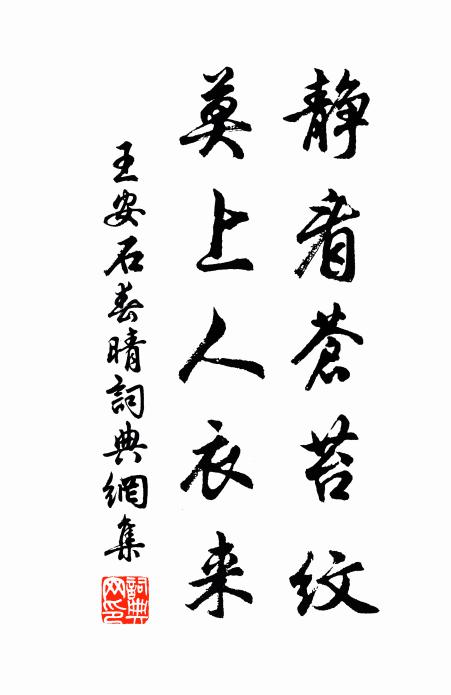 静看苍苔纹
莫上人衣来
王安石春晴詞典網集
詞典網印